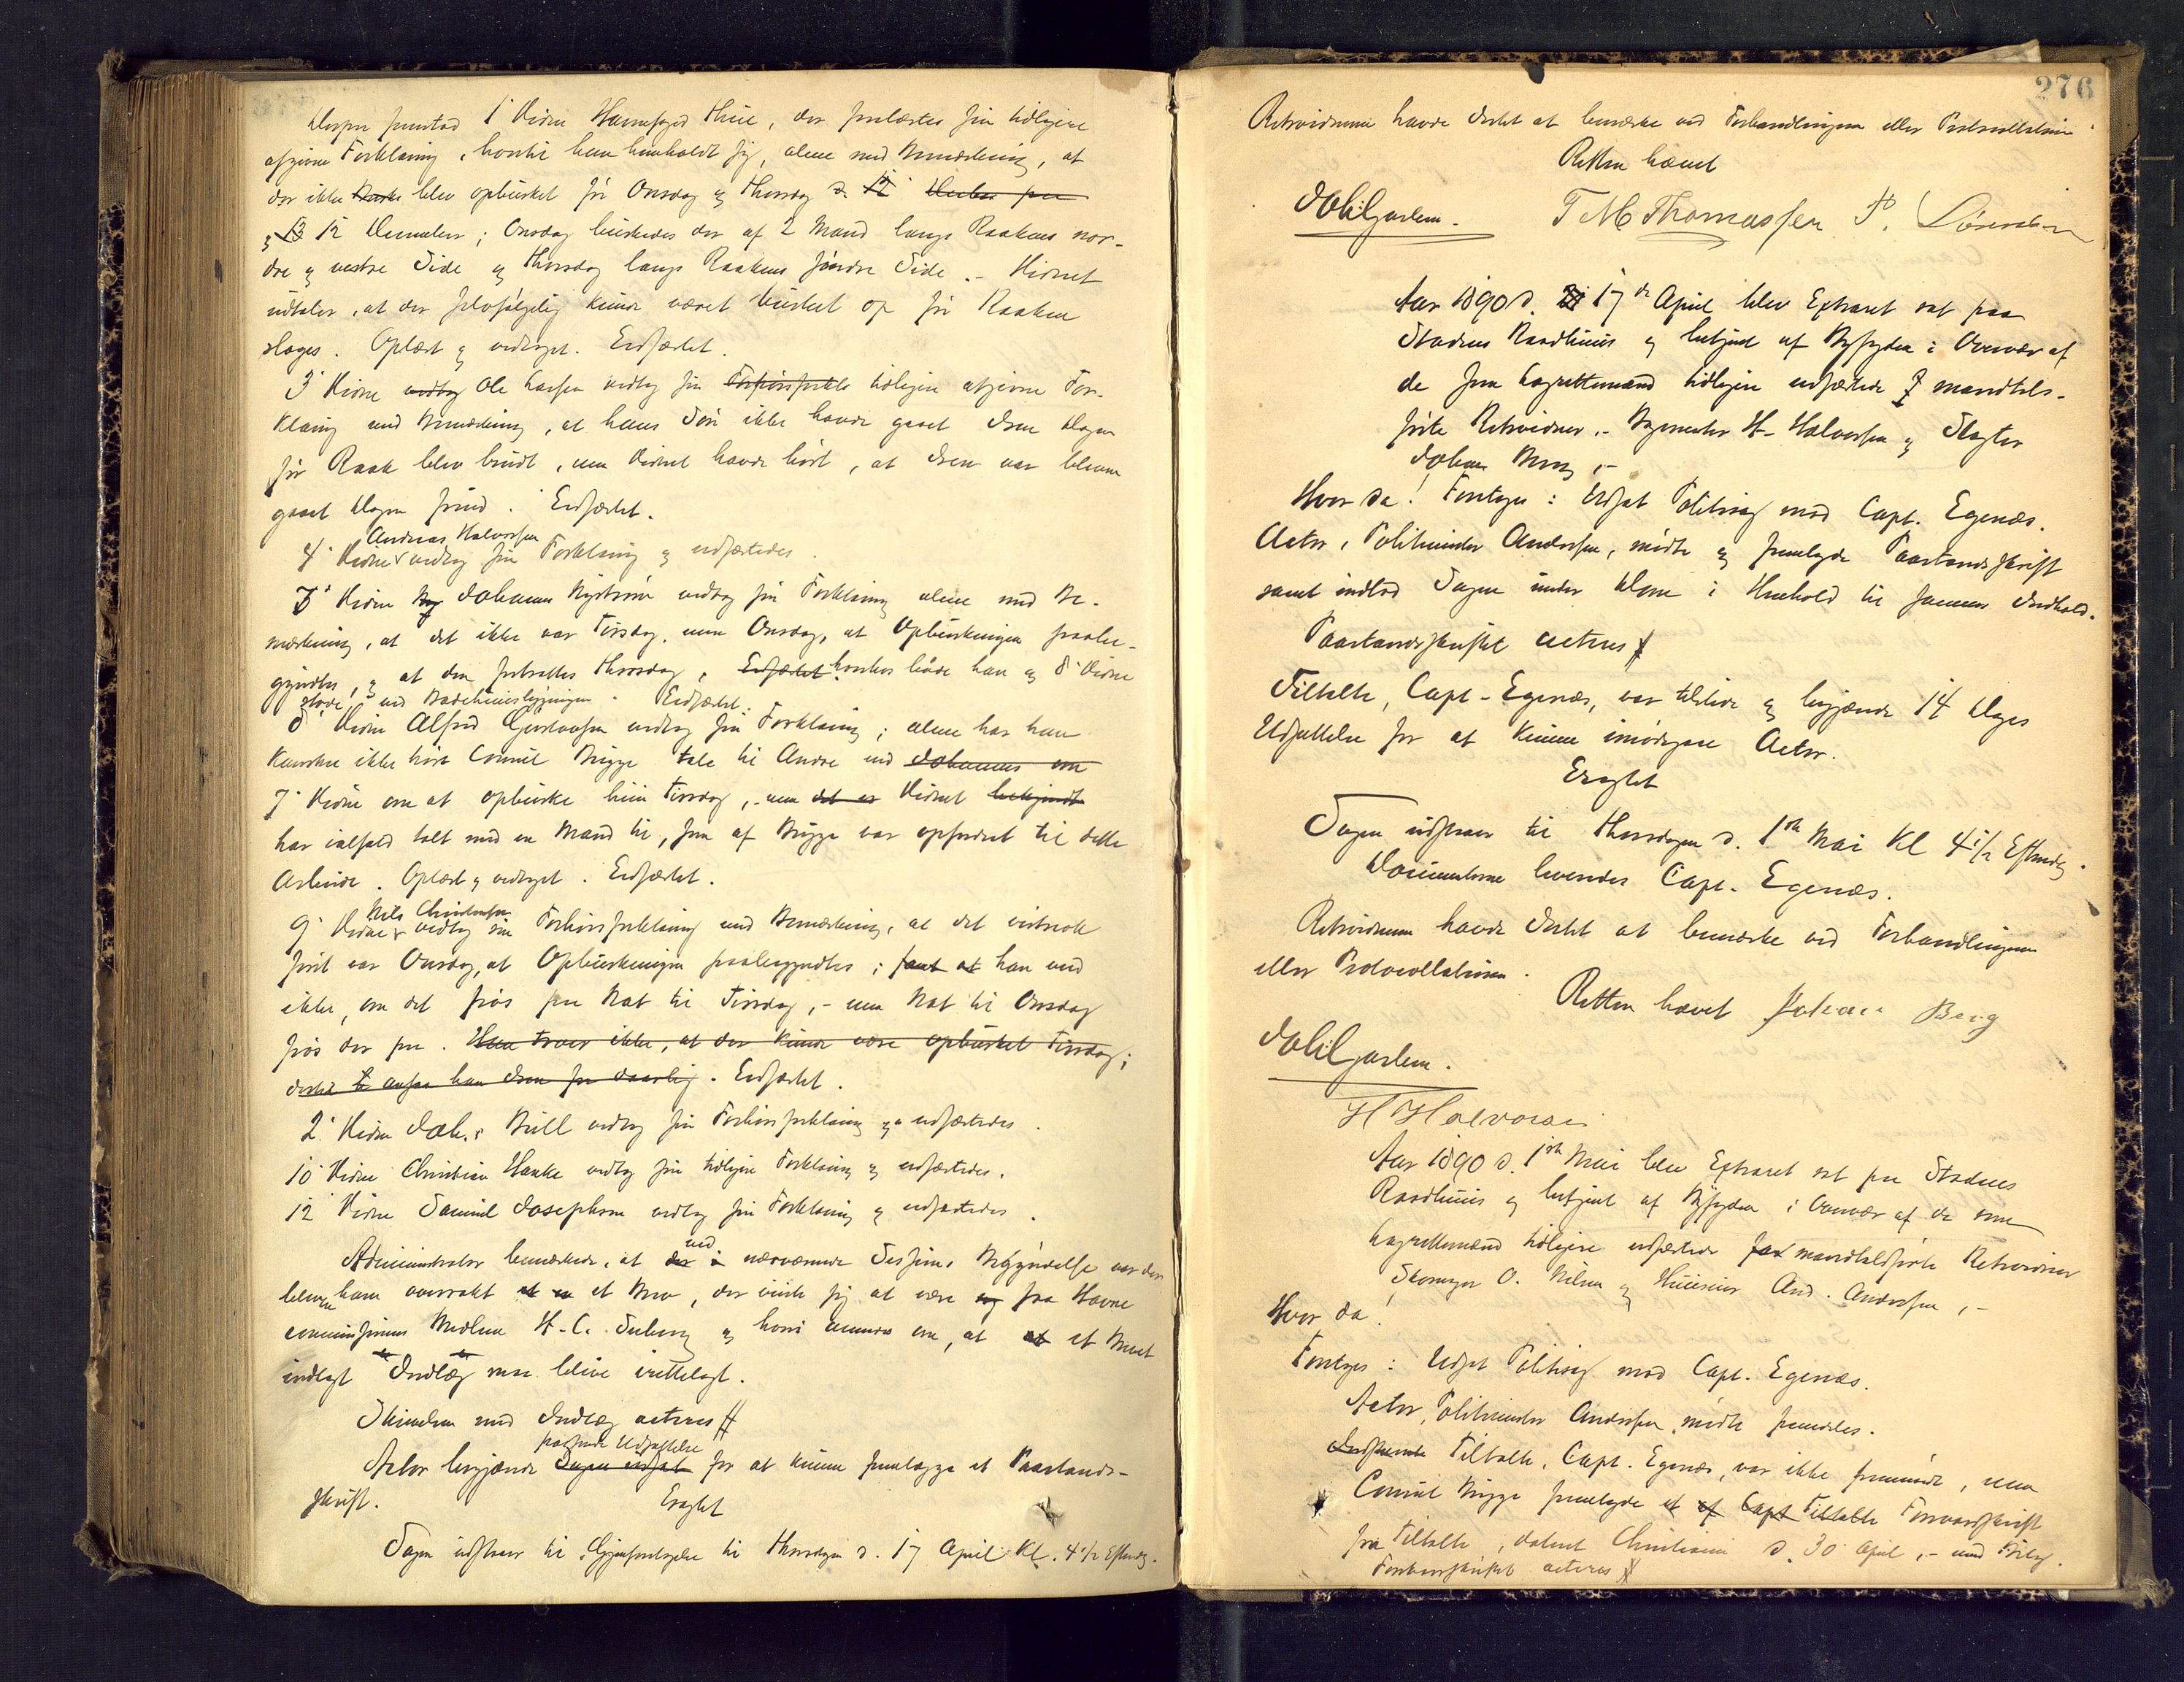 Derpaa fremstod 1' Vidne Havnefoged Thue, der forelæstes sin tidligere
afgivne Forklaring, hvortil han henholdt sig, alene med Bemærkning, at
der ikke blev opbusket før Onsdag og Thorsdag d.
og 12 December; Onsdag buskedes der af 2 Mand langs Raakens nor-
dre og vestre Side og Thorsdag langs Raakens søndre Side. – Vidnet
udtaler, at der selvfølgelig kunde været busket op før Raaken
sloges. Oplæst og vedtaget. Eedfæstet.
3' Vidne Ole Larsen vedtog sin tidligere afgivne For-
klaring med Bemærkning, at hans Søn ikke havde gaaet Isen Dagen
før Raak blev brudt, men Vidnet havde hørt, at Isen var bleven
gaaet Dagen forud. Eedfæstet.
4' Vidne Andreas Halvorsen vedtog sin Forklaring og eedfæstedes.
7' Vidne Johannes Nystrøm vedtog sin Forklaring alene med Be-
mærkning, at det ikke var Tirsdag, men Onsdag, at Opbuskningen paabe-
gyndtes, og at den fortsattes Thorsdag, hvorhos baade han og 8' Vidne
stode ved Badehuusbygningen. Eedfæstet.
8' Vidne Alfred Gustavsen vedtog sin Forklaring; alene har han
kanskee ikke hørt Consul Brygge tale til Andre end
7' Vidne om at opbuske hiin Tirsdag, – men Vidnet
har ialfald talt med en Mand til, som af Brygge var opfordret til dette
Arbeide. Oplæst og vedtaget. Eedfæstet.
9' Vidne Nils Christensen vedtog sin Forhørsforklaring med Bemærkning, at det vistnok
først var Onsdag, at Opbuskningen paabegyndtes; han veed
ikke, om det frøs paa Nat til Tirsdag, – men Nat til Onsdag
frøs der paa. Han troer ikke, at der kunde være opbusket Tirsdag;
dertil ansaa han Isen for daarlig. Eedfæstet.
2' Vidne Joh. Bull vedtog sin Forhørsforklaring og eedfæstedes.
10' Vidne Christian Hanke vedtog sin tidligere Forklaring og eedfæstedes.
12' Vidne Samuel Josephsen vedtog sin Forklaring og eedfæstedes.
Administrator bemærkede, at ved nærværende Sessions Begyndelse var der
bleven ham overrakt et Brev, der viiste sig at være fra Havne
commissionens Medlem H. C. Seeberg og hvori ommeres om, at et Brevet
indlagt Indlæg maa blive irettelagt.
Skrivelsen med Indlæg acteres #
Actor begjærede passende Udsættelse for at kunne fremlægge et Paastands-
skrift.
Eragtet
Sagen udstaaer til Gjenforetagelse til Thorsdagen d. 17 April Kl. 4 1/2 Efterm.
276
Retsvidnerne havde Intet at bemærke ved Forhandlingen eller Protocollationen
Retten hævet
T M Thomassen P. Sørensen
Aar 1890 d. 17de April blev Extraret sat paa
Stadens Raadhuus og betjent af Byfogden i Overvær af
de som Lagrettemænd tidligere eedfæstede mandtals-
førte Retsvidner, – Bagermester H. Halvorsen og Slagter
Johan Berg, –
Hvor da! Foretoges: Udsat Politisag mod Capt. Egenæs.
Actor, Politimester Andersen, mødte og fremlagde Paastandsskrift
samt indlod Sagen under Dom i Henhold til sammes Indhold.
Paastandsskriftet acteres #
Tiltalte, Capt. Egenæs, var tilstede og begjærede 14 Dages
Udsættelse for at kunne imødegaae Actor.
Eragtet
Sagen udstaaer til Thorsdagen d. 1ste Mai Kl 4 1/2 Efterm.
Documenterne leveredes Capt. Egenæs.
Retsvidnerne havde Intet at bemærke ved Forhandlingen
eller Protocollationen.
Retten hævet Johan Berg
H Halvorsen
Aar 1890 d. 1ste Mai blev Extraret sat paa Stadens
Raadhuus og betjent af Byfogden i Overvær af de som
Lagrettemænd tidligere eedfæstede mandtalsførte Retsvidner
Skomager O. Nilsen og Huuseier And. Andersen, –
Hvor da!
Foretoges: Udsat Politisag mod Capt. Egenæs.
Actor, Politimester Andersen, mødte fremdeles.
Tiltalte, Capt. Egenæs, var ikke fremmødt, men
Consul Brygge fremlagde et af Capt Tiltalte Forsvarsskrift
fra Tiltalte, dateret Christiania d. 30 April, – med Bilag.
Forsvarsskriftet acteres #